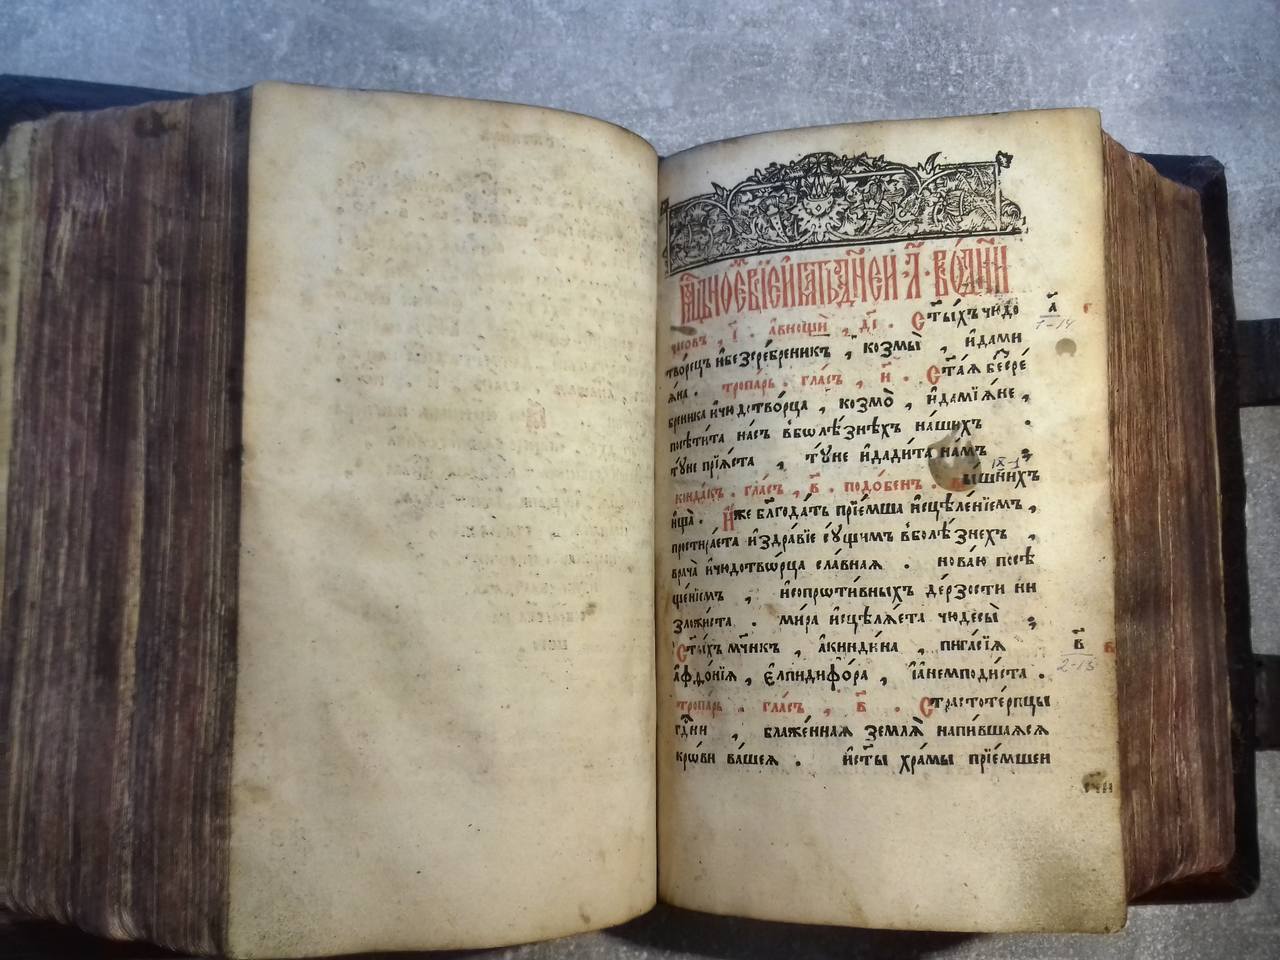 часовъ , і҃ . а҆ в̾нощи , д҃і . Ст҃ы́хъ чюдо
а҃
1-14
тво́рецъ и҆безсре́бреникъ , козмы̀ , и҆дами
ѧ́на . тропа́рь . гла́съ , и҃ . Ст҃а́ѧ бесре́
бреника и҆чюдотво́рца , козмо̀ , и҆дамїѧ́не ,
посѣти́та на́съ в̾болѣ́знѣхъ на́шихъ .
тꙋ́не прїѧ́ста , тꙋ́не и҆дади́та на́мъ
IX-1
конда́къ . гла́съ , в҃ . подо́бенъ . вы́шнихъ
и҆́же бл҃года́ть прїе́мша и҆сцѣле́нїемъ ,
простира́ета и҆здра́вїе сꙋ́щимъ в̾боле́знехъ ,
врача̀ и҆чюдотво́рца сла́внаѧ . но́вою посѣ
ще́нїемъ , и҆сопроти́вныхъ де́рзости ни
зложи́ста . ми́ра и҆сцѣлѧ́ета чюдесы̀ ,
Ст҃ы́хъ мч҃никъ , а҆кинди́на , пига́сїѧ
в҃
2-15
а҆фдо́нїѧ , є҆лпидифо́ра , и҆а҆немподи́ста .
тропа́рь . гла́съ , в҃ . Страстоте́рпцы
гд҃ни , блаже́ннаѧ землѧ̀ напи́вшаѧсѧ
кро́ви ва́шеѧ . и҆ст҃ы хра́мы прїе́мшеи